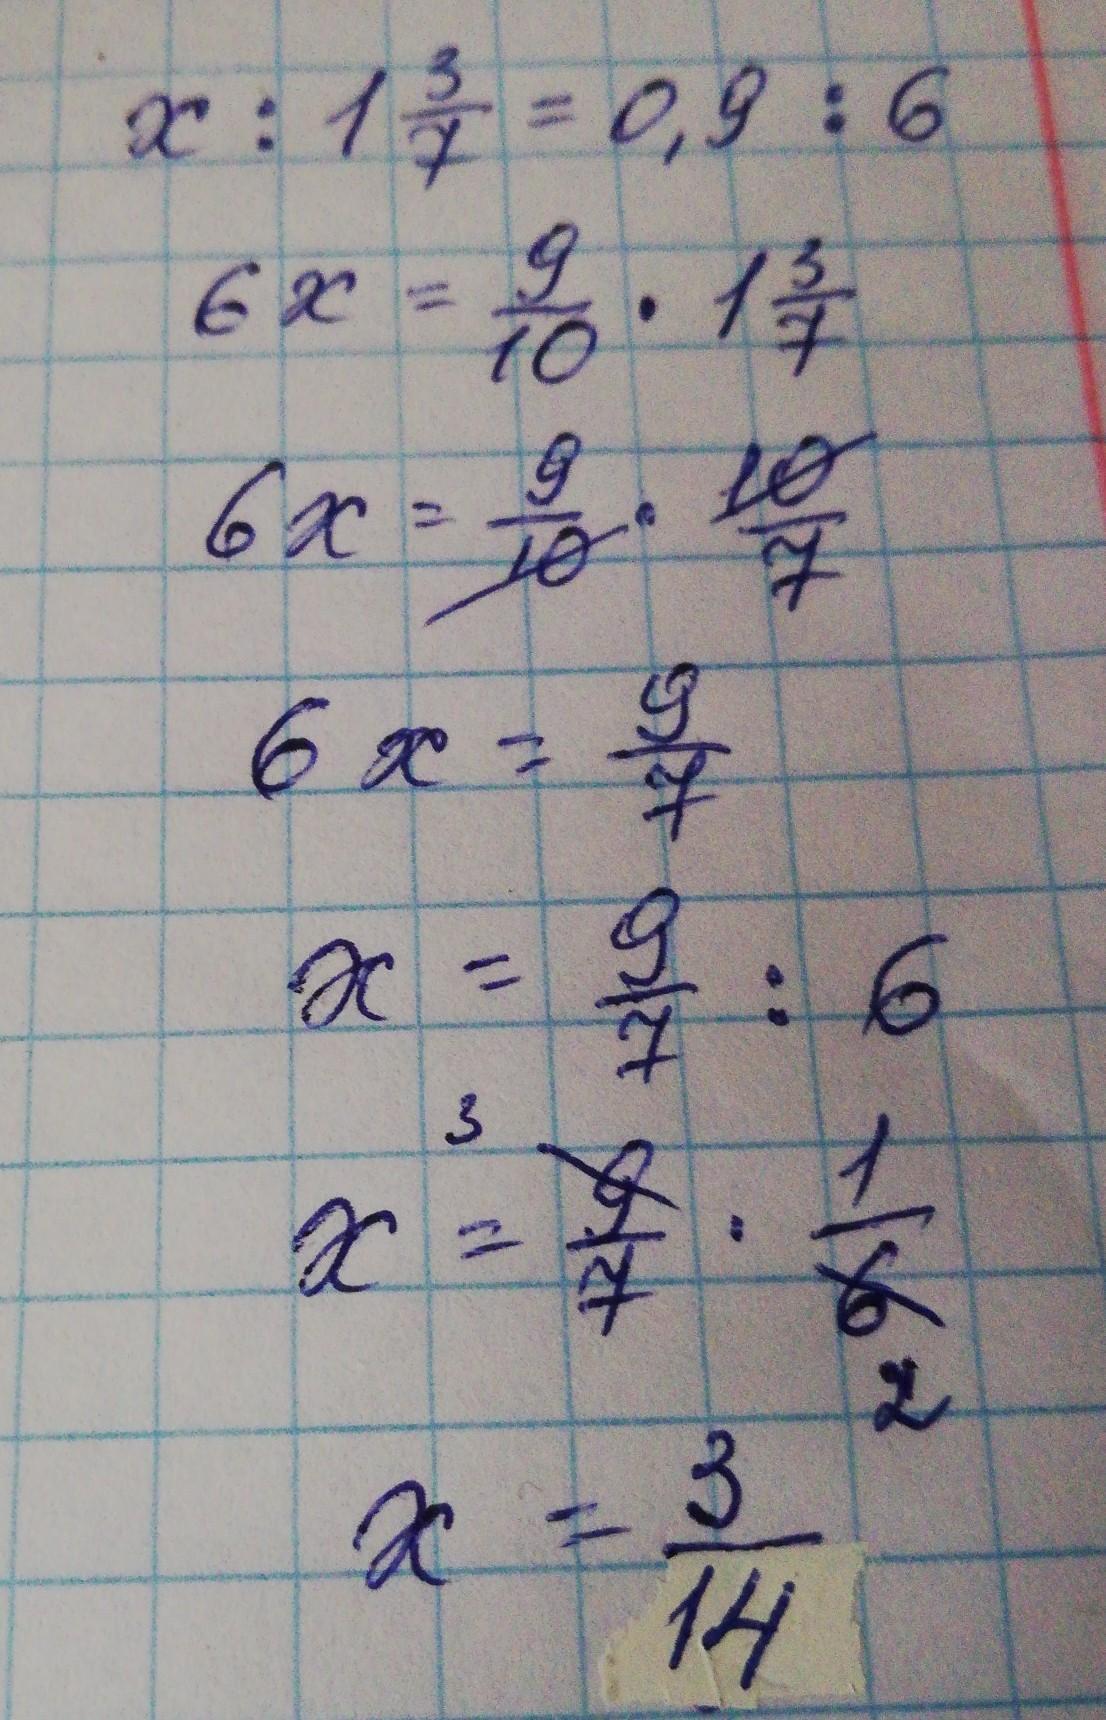 x : 1 3/7 = 0,9 : 6
6x = 9/10 · 1 3/7
6x = 9/10 · 10/7
6x = 9/7
x = 9/7 : 6
3
x = 9/7 · 1/6
2
x = 3/14